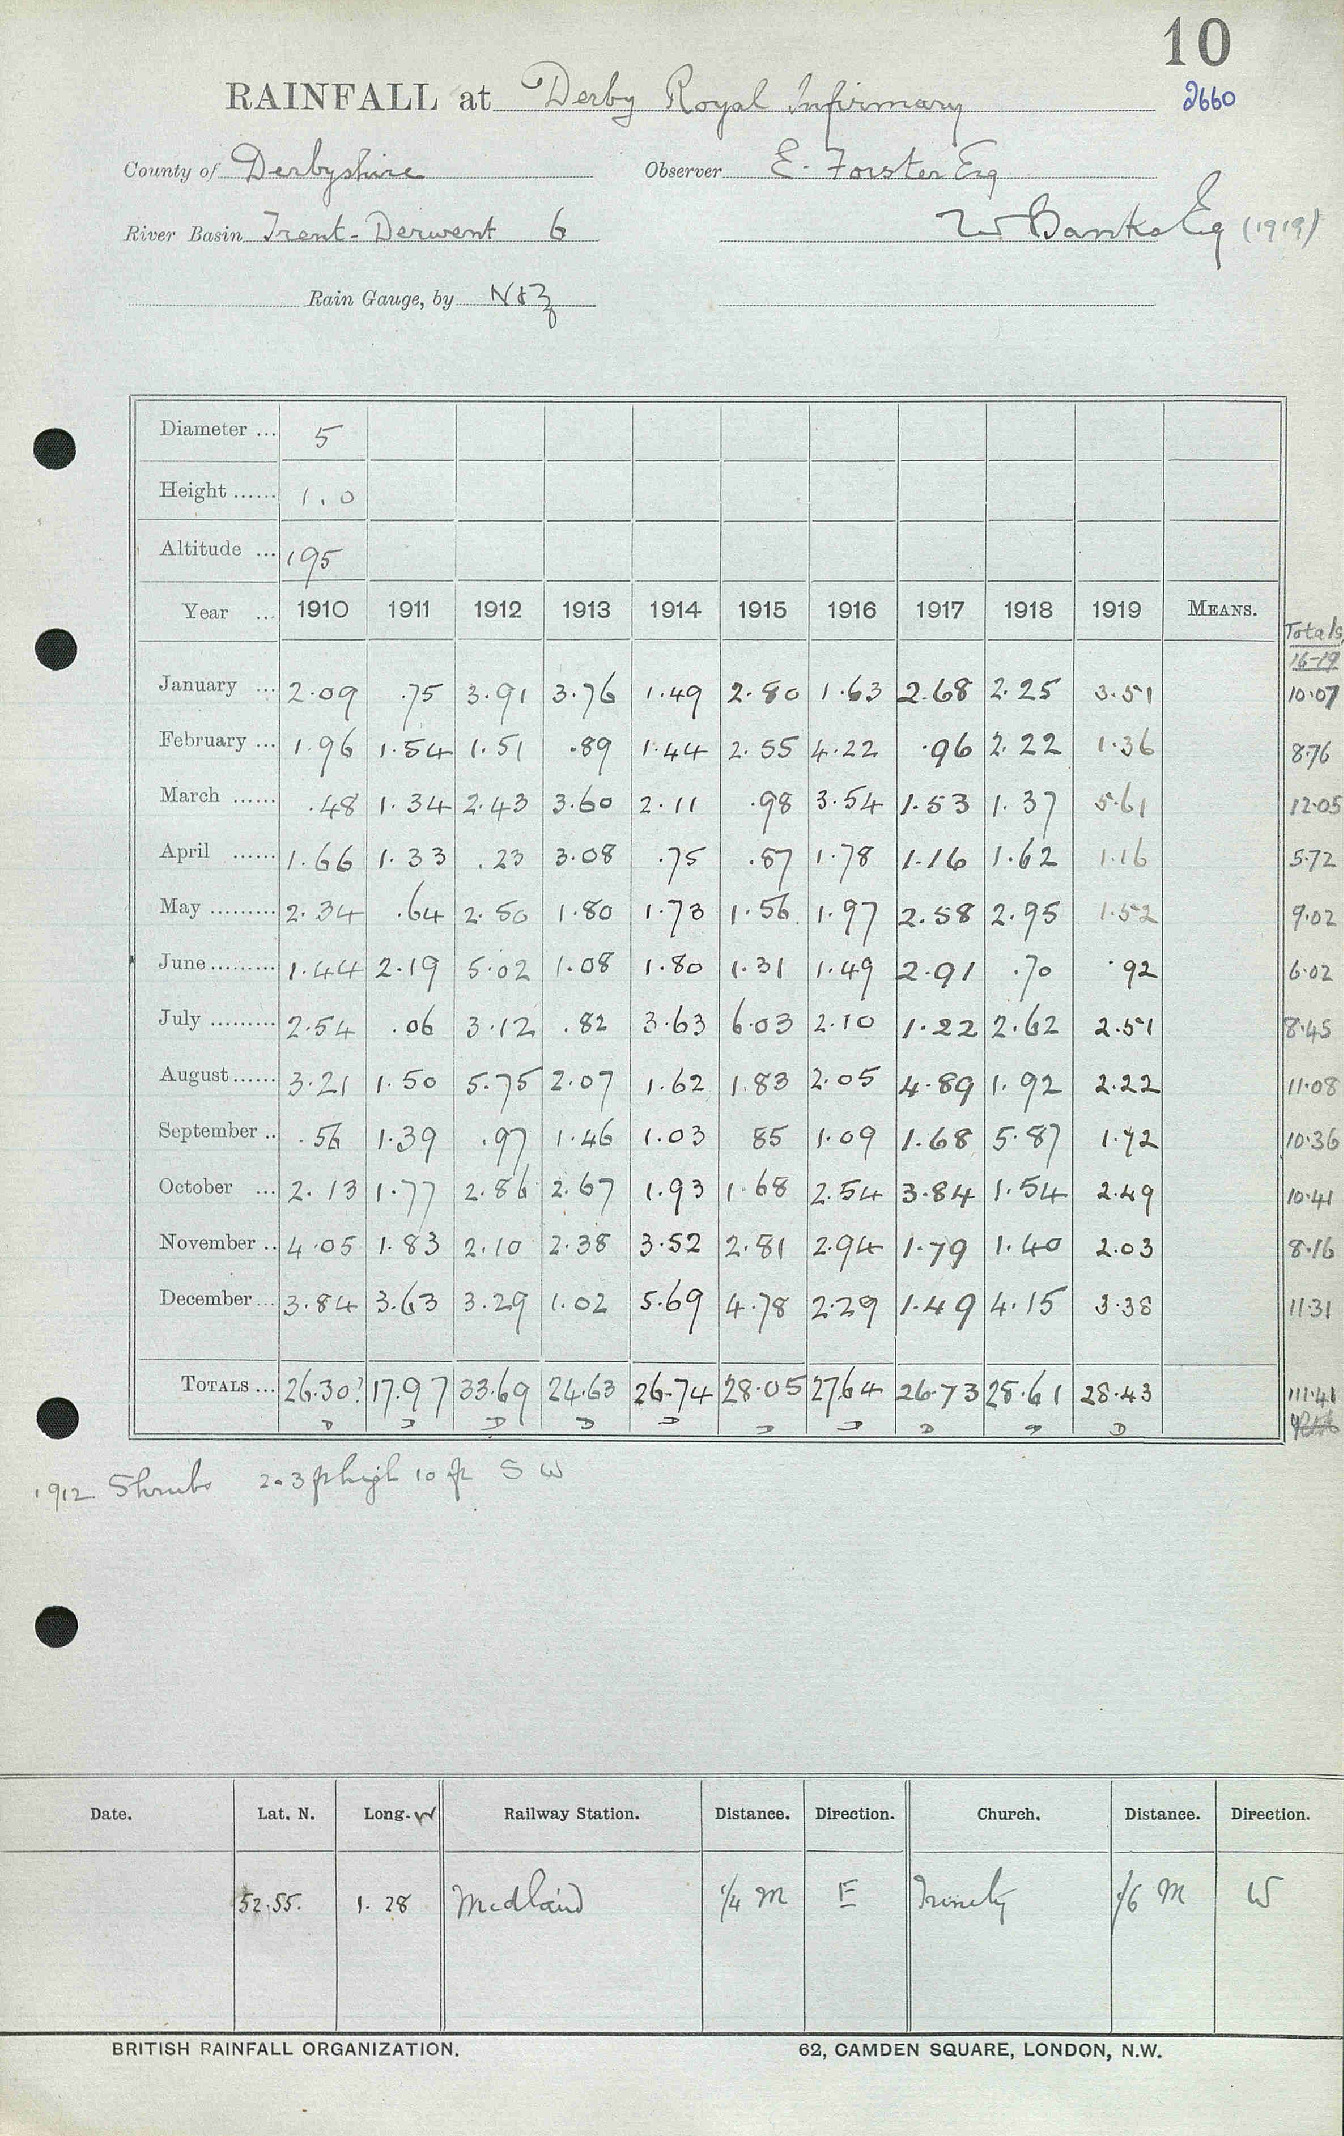 10
RAINFALL at Derby Royal Infirmary 2660
County of Derbyshire Observer E. Forster Esq
River Basin Trent-Derwent 6 W Banks Esq (1919)
Rain Gauge, by N&Z
Diameter ... 5
Height ...... 1.0
Altitude ... 195
Year ... 1910 1911 1912 1913 1914 1915 1916 1917 1918 1919 MEANS. Totals
16-19
January ... 2.09 .75 3.91 3.76 1.49 2.80 1.63 2.68 2.25 3.51 10.07
February ... 1.96 1.54 1.51 .89 1.44 2.55 4.22 .96 2.22 1.36 8.76
March ...... .48 1.34 2.43 3.60 2.11 .98 3.54 1.53 1.37 5.61 12.05
April ...... 1.66 1.33 .23 3.08 .75 .87 1.78 1.16 1.62 1.16 5.72
May ......... 2.34 .64 2.50 1.80 1.73 1.56 1.97 2.58 2.95 1.52 9.02
June ......... 1.44 2.19 5.02 1.08 1.80 1.31 1.49 2.91 .70 .92 6.02
July ......... 2.54 .06 3.12 .82 3.63 6.03 2.10 1.22 2.62 2.51 8.45
August ...... 3.21 1.50 5.75 2.07 1.62 1.83 2.05 4.89 1.92 2.22 11.08
September .. .56 1.39 .97 1.46 1.03 85 1.09 1.68 5.87 1.72 10.36
October ... 2.13 1.77 2.86 2.67 1.93 1.68 2.54 3.84 1.54 2.49 10.41
November .. 4.05 1.83 2.10 2.38 3.52 2.81 2.94 1.79 1.40 2.03 8.16
December ... 3.84 3.63 3.29 1.02 5.69 4.78 2.29 1.49 4.15 3.38 11.31
TOTALS ... 26.30? 17.97 33.69 24.63 26.74 28.05 27.64 26.73 28.61 28.43 111.41
D D D D D D D D D D
1912 Shrubs 2-3 ft high 10 ft S W
Date. Lat. N. Long. W Railway Station. Distance. Direction. Church. Distance. Direction.
52.55. 1. 28 Midland 1/4 M E Trinity 1/6 M W
BRITISH RAINFALL ORGANIZATION. 62, CAMDEN SQUARE, LONDON, N.W.